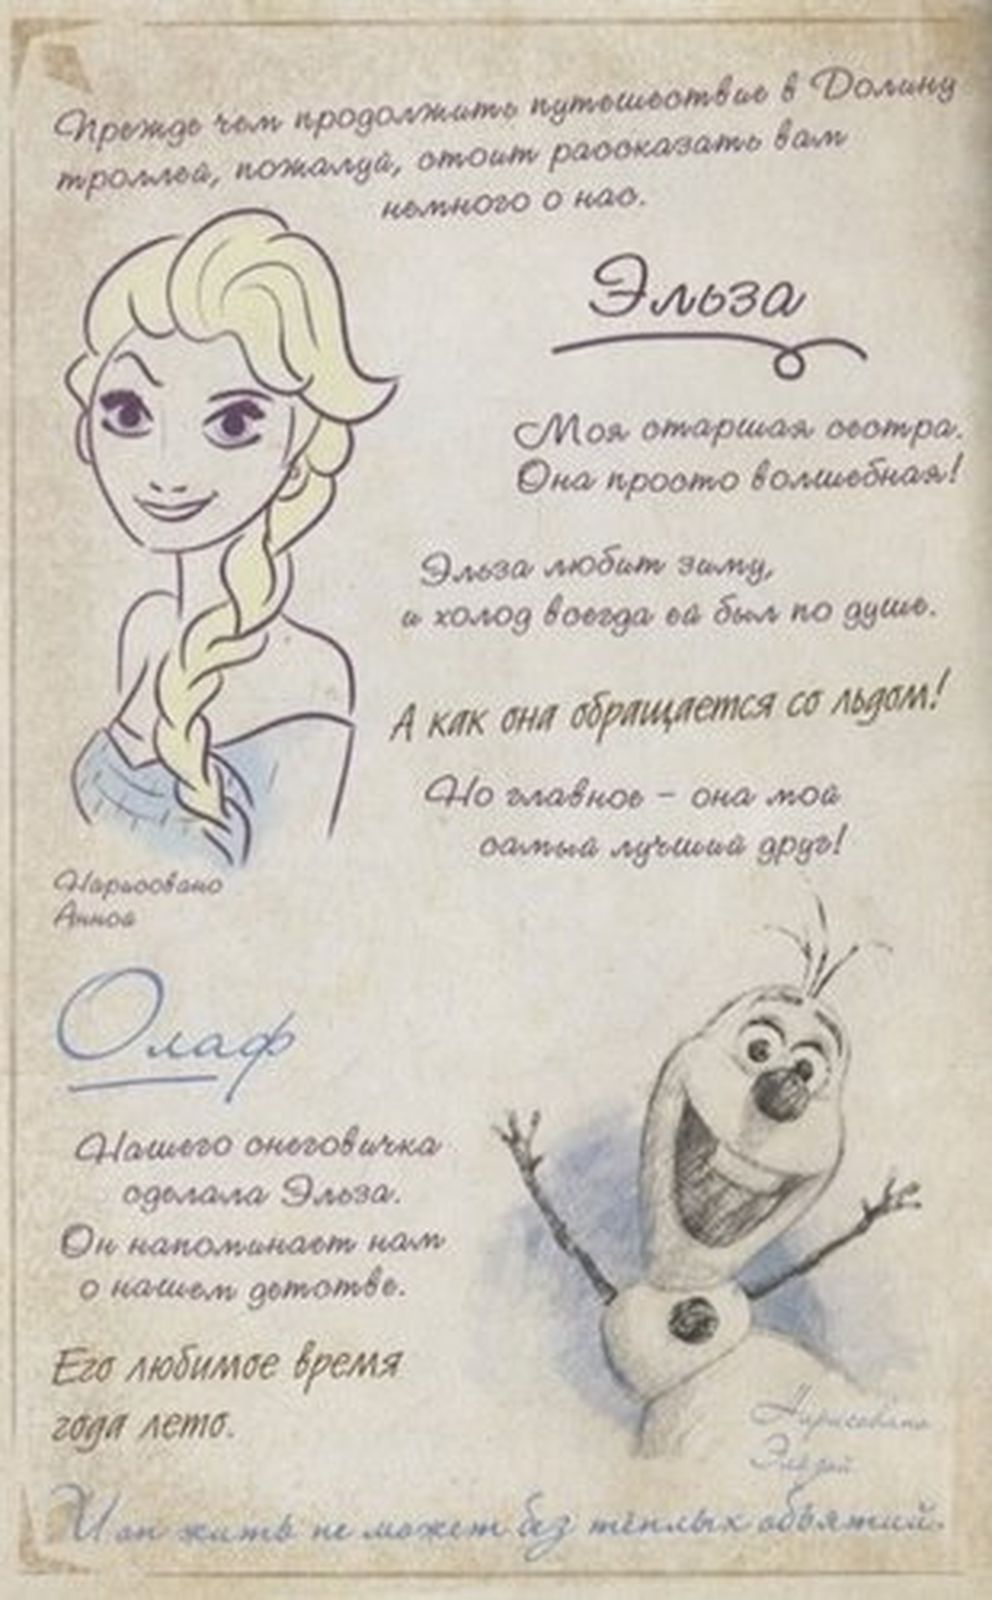 Прежде чем продолжить путешествие в Долину
троллей, пожалуй, стоит рассказать вам
немного о нас.
Эльза
Моя старшая сестра.
Она просто волшебная!
Эльза любит зиму,
и холод всегда ей был по душе.
А как она обращается со льдом!
Но главное – она мой
самый лучший друг!
Нарисовано
Анной
Олаф
Нашего снеговичка
сделала Эльза.
Он напоминает нам
о нашем детстве.
Его любимое время
года лето.
Нарисовано
Эльзой
И он жить не может без тёплых объятий.